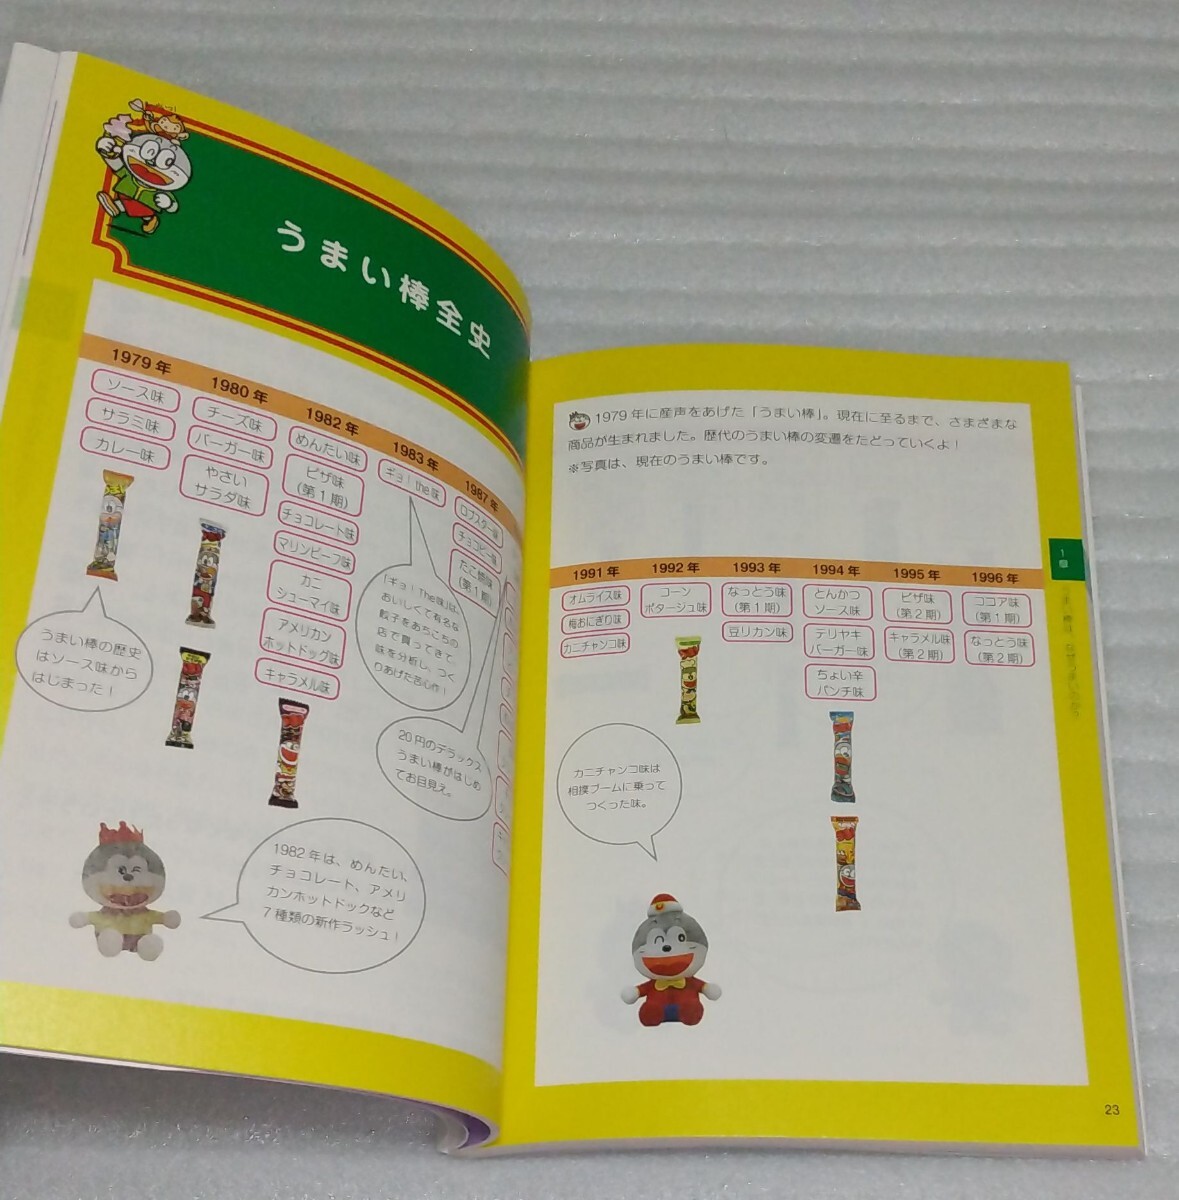 うまい棒全史
1979年
ソース味
サラミ味
カレー味
1980年
チーズ味
バーガー味
やさい
サラダ味
1982年
めんたい味
ピザ味
(第1期)
チョコレート味
マリンビーフ味
カニ
シューマイ味
アメリカン
ホットドッグ味
キャラメル味
1983年
ギョ!the味
1987年
ロブスター味
チョコビー味
たこ焼味
(第1期)
うまい棒の歴史
はソース味から
はじまった!
「ギョ!The味」は、
おいしくて有名な
餃子をあちこちの
店で買ってきて、
味を分析し、つく
りあげた苦心作!
20円のデラックス
うまい棒がはじめ
てお目見え。
1982年は、めんたい、
チョコレート、アメリ
カンホットドックなど
7種類の新作ラッシュ!
1979年に産声をあげた「うまい棒」。現在に至るまで、さまざまな
商品が生まれました。歴代のうまい棒の変遷をたどっていくよ!
※写真は、現在のうまい棒です。
1991年
オムライス味
梅おにぎり味
カニチャンコ味
1992年
コーン
ポタージュ味
1993年
なっとう味
(第1期)
豆リカン味
1994年
とんかつ
ソース味
テリヤキ
バーガー味
ちょい辛
パンチ味
1995年
ピザ味
(第2期)
キャラメル味
(第2期)
1996年
ココア味
(第1期)
なっとう味
(第2期)
カニチャンコ味は
相撲ブームに乗って
つくった味。
1
章
23